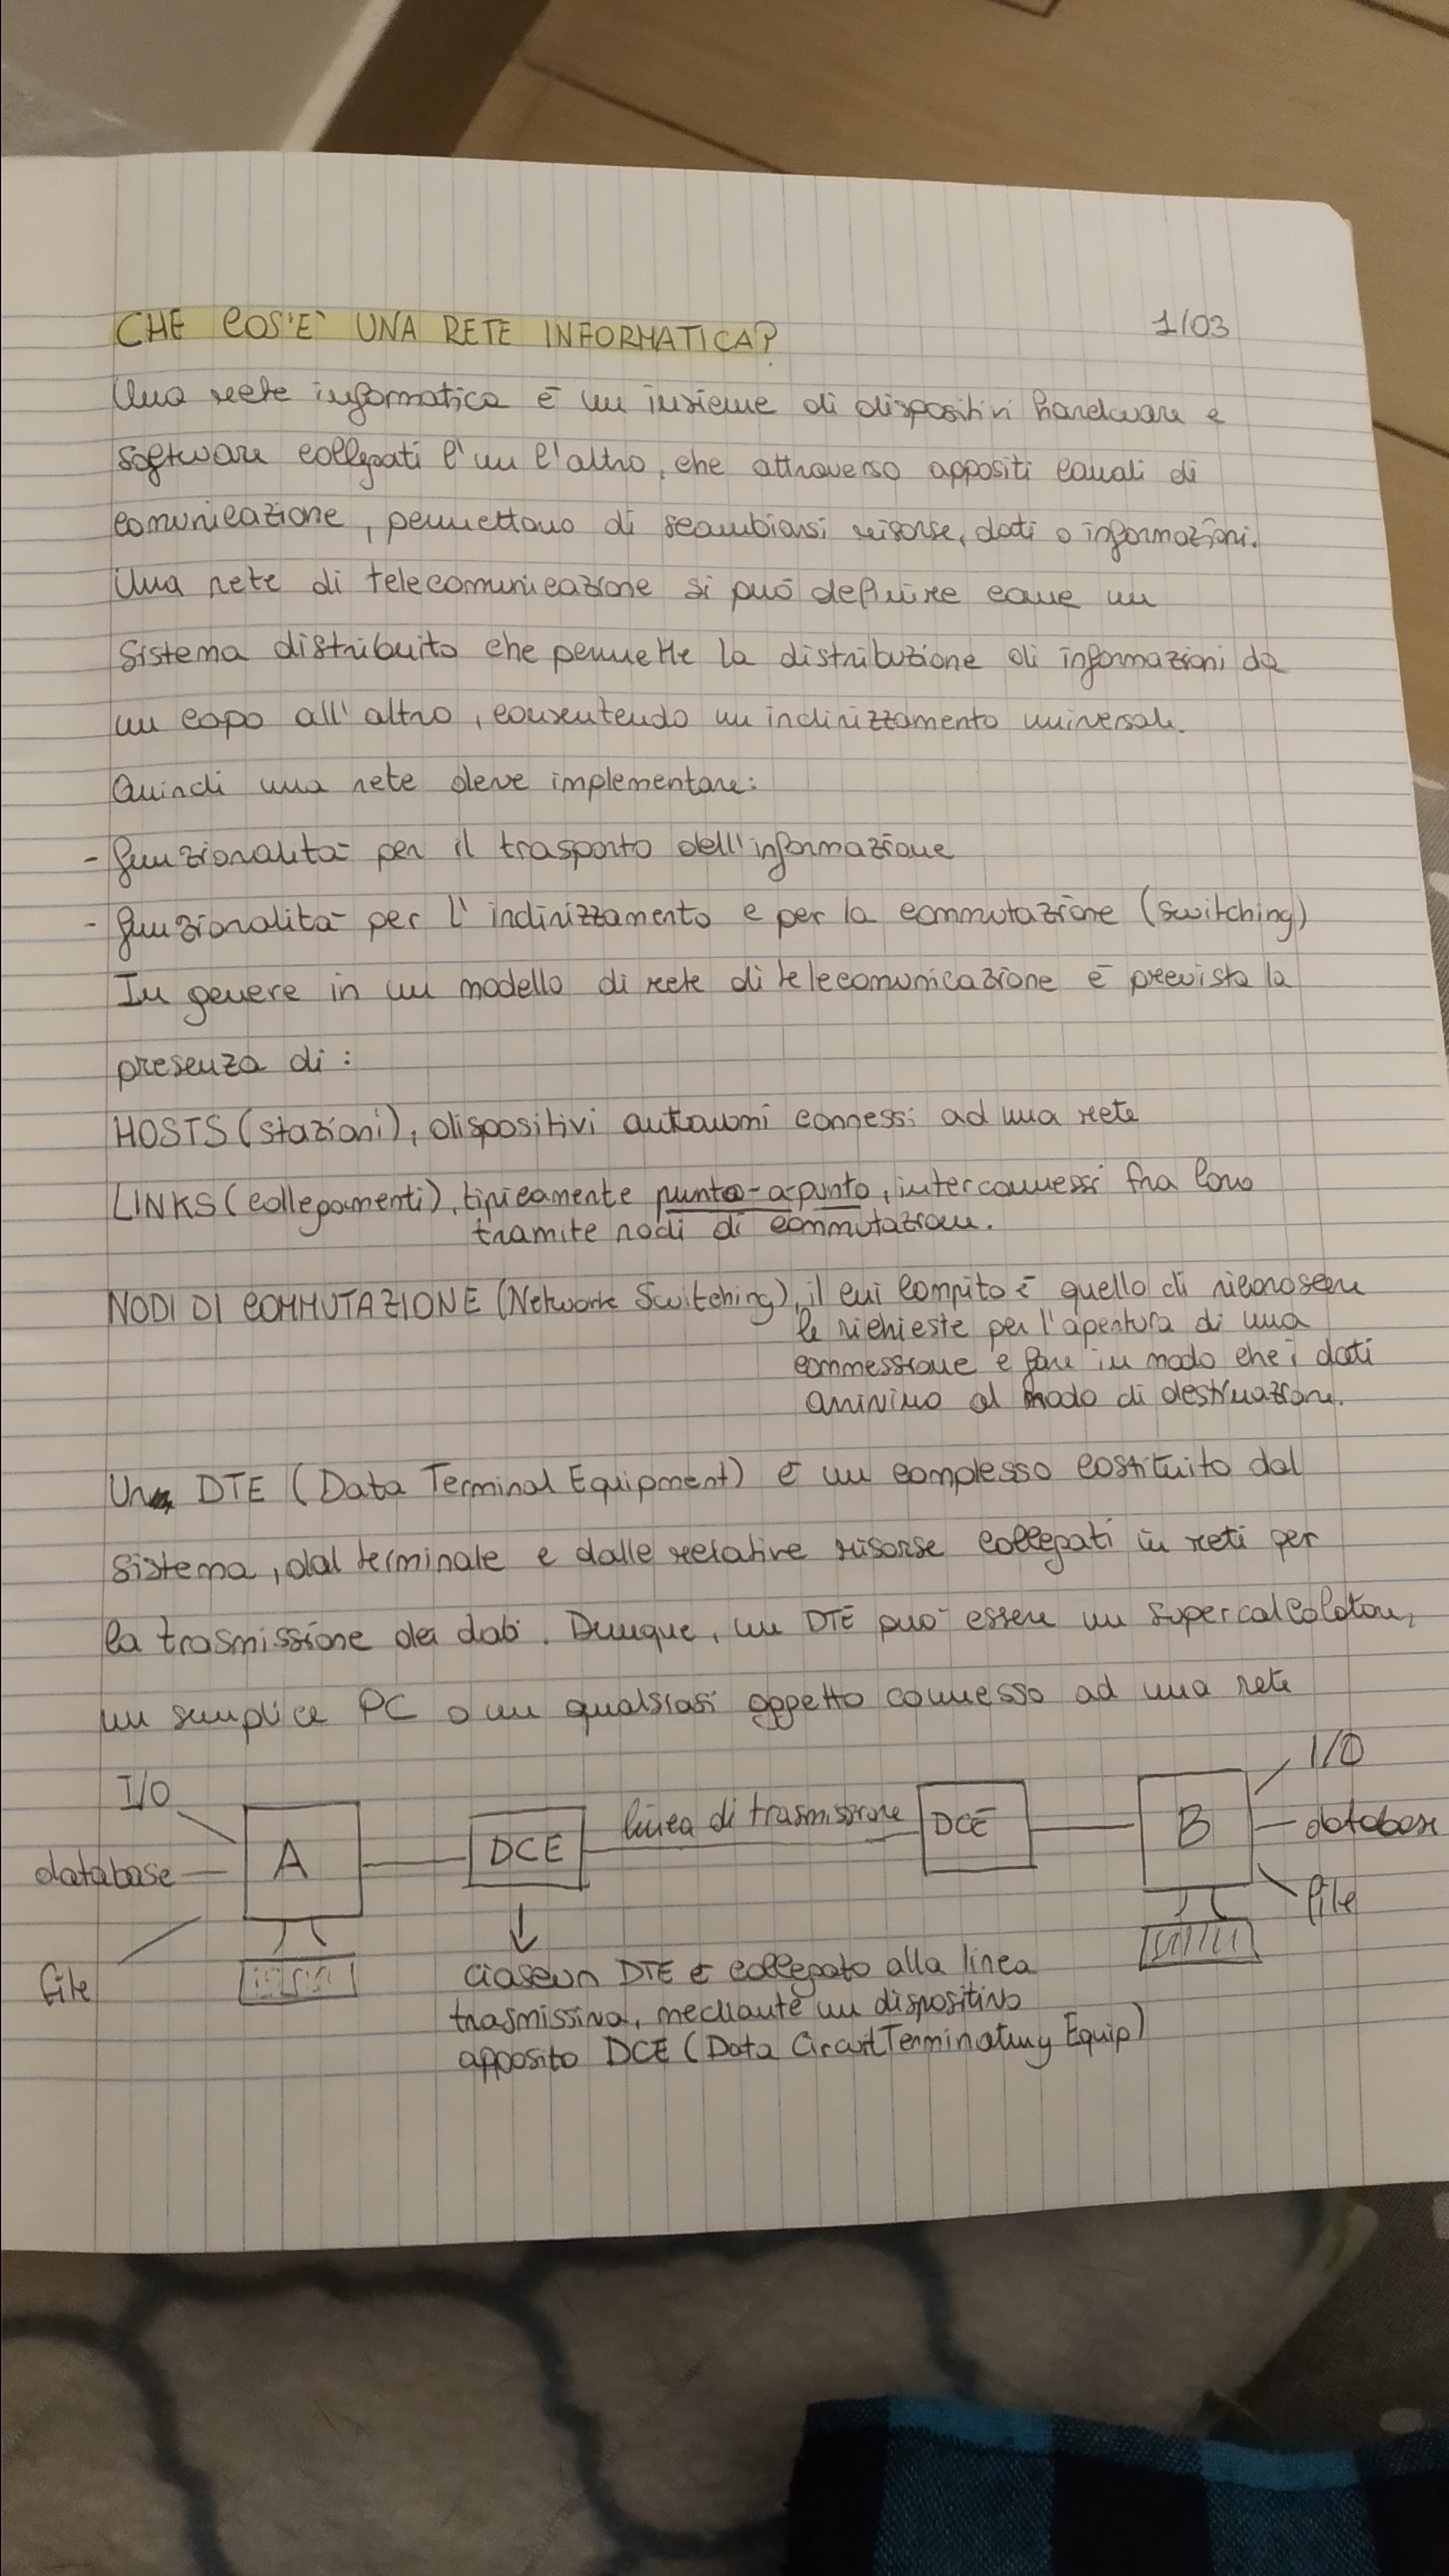 CHE COS'E' UNA RETE INFORMATICA?
1/03
Una rete informatica è un insieme di dispositivi hardware e
software collegati l'un l'altro, che attraverso appositi canali di
comunicazione, permettono di scambiarsi risorse, dati o informazioni.
Una rete di telecomunicazione si può definire come un
Sistema distribuito che permette la distribuzione di informazioni da
un capo all'altro, consentendo un indirizzamento universale.
Quindi una rete deve implementare:
- funzionalità per il trasporto dell'informazione
- funzionalità per l'indirizzamento e per la commutazione (switching)
In genere in un modello di rete di telecomunicazione è prevista la
presenza di:
HOSTS (stazioni), dispositivi autonomi connessi ad una rete
LINKS (collegamenti), tipicamente punto-a-punto, interconnessi fra loro
tramite nodi di commutazione.
NODI DI COMMUTAZIONE (Network Switching), il cui compito è quello di riconoscere
le richieste per l'apertura di una
commessione e fare in modo che i dati
arrivino al nodo di destinazione.
Un DTE (Data Terminal Equipment) è un complesso costituito dal
sistema, dal terminale e dalle relative risorse collegati in reti per
la trasmissione dei dati. Dunque, un DTE può essere un supercalcolatore,
un semplice PC o un qualsiasi oggetto connesso ad una rete
I/O
database
file
A
DCE
linea di trasmissione
DCE
B
I/O
database
file
ciascun DTE è collegato alla linea
trasmissiva, mediante un dispositivo
apposito DCE (Data Circuit Terminating Equip)